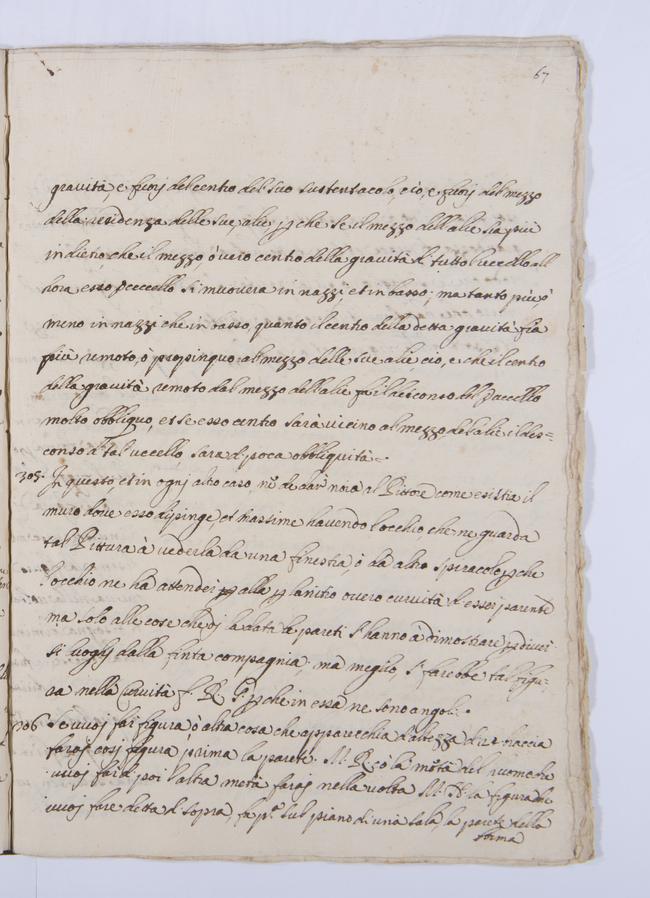 67
gravità, e fuorj del centro del suo sustentacolo, cio, e fuorj del mezzo
della residenza delle sue alie, pche se il mezzo dell'alie sia più
indietro, che il mezzo, ò vero centro della gravità di tutto l'uccello all
hora esso Vccello si muovera in nazzj, et in basso; ma tanto più, ò
meno in nazzj che in basso, quanto il centro della detta gravità fia
più remoto, o propinquo al mezzo delle sue alie, cio, e che il centro
della gravità remoto dal mezzo dell'alie fa il descenso del Vccello
molto obbliquo, et se esso centro sarà vicino al mezzo dell'alie il des=
censo di tal uccello sara di poca obbliquità.
305. In questo, et in ognj altro caso, nõ de dar noia al Pittore come esistia il
muro dove esso dipinge et massime havendo l'occhio che ne guarda
tal Pittura à vederla da una finestra, ò da altro spiracolo, pche
l'occhio ne ha attender alla planitie overo curvità di essoi parente
ma solo alle cose che di la da tal pareti s'hanno à dimostrare, p divers
si luoghj dalla finta compagnia, mà meglio, si farebbe tal figu=
ra nella Curvità f. R. G. pche in essa ne sono angolj.
306 Se vuoj far figura ò altra cosa che apparischa d'altezza di 24 braccia
faraj cosj figura prima la parete M. R. cõ la mõtà del huomo che
vuoj far, di poi l'altra metà faraj nella volta M. la figura che
vuoj fare detta di sopra, fa pª. sul piano di una sala la parete della
forma